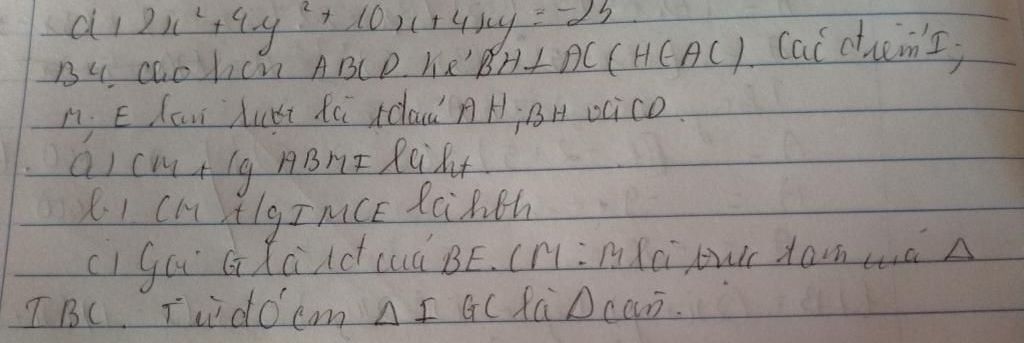 d, 2x² + 4y² + 10x + 4xy = -25
B4. cho hcn ABCD. Kẻ BH ⊥ AC (H∈AC). Các điểm I;
M; E lần lượt là tđ của AH; BH và CD.
a) CM t/g ABMI là ht
b) CM t/g IMCE là hbh
c) Gọi G là tđ của BE. CM: M là trực tâm của Δ
IBC. Từ đó cm Δ IGC là Δ cân.